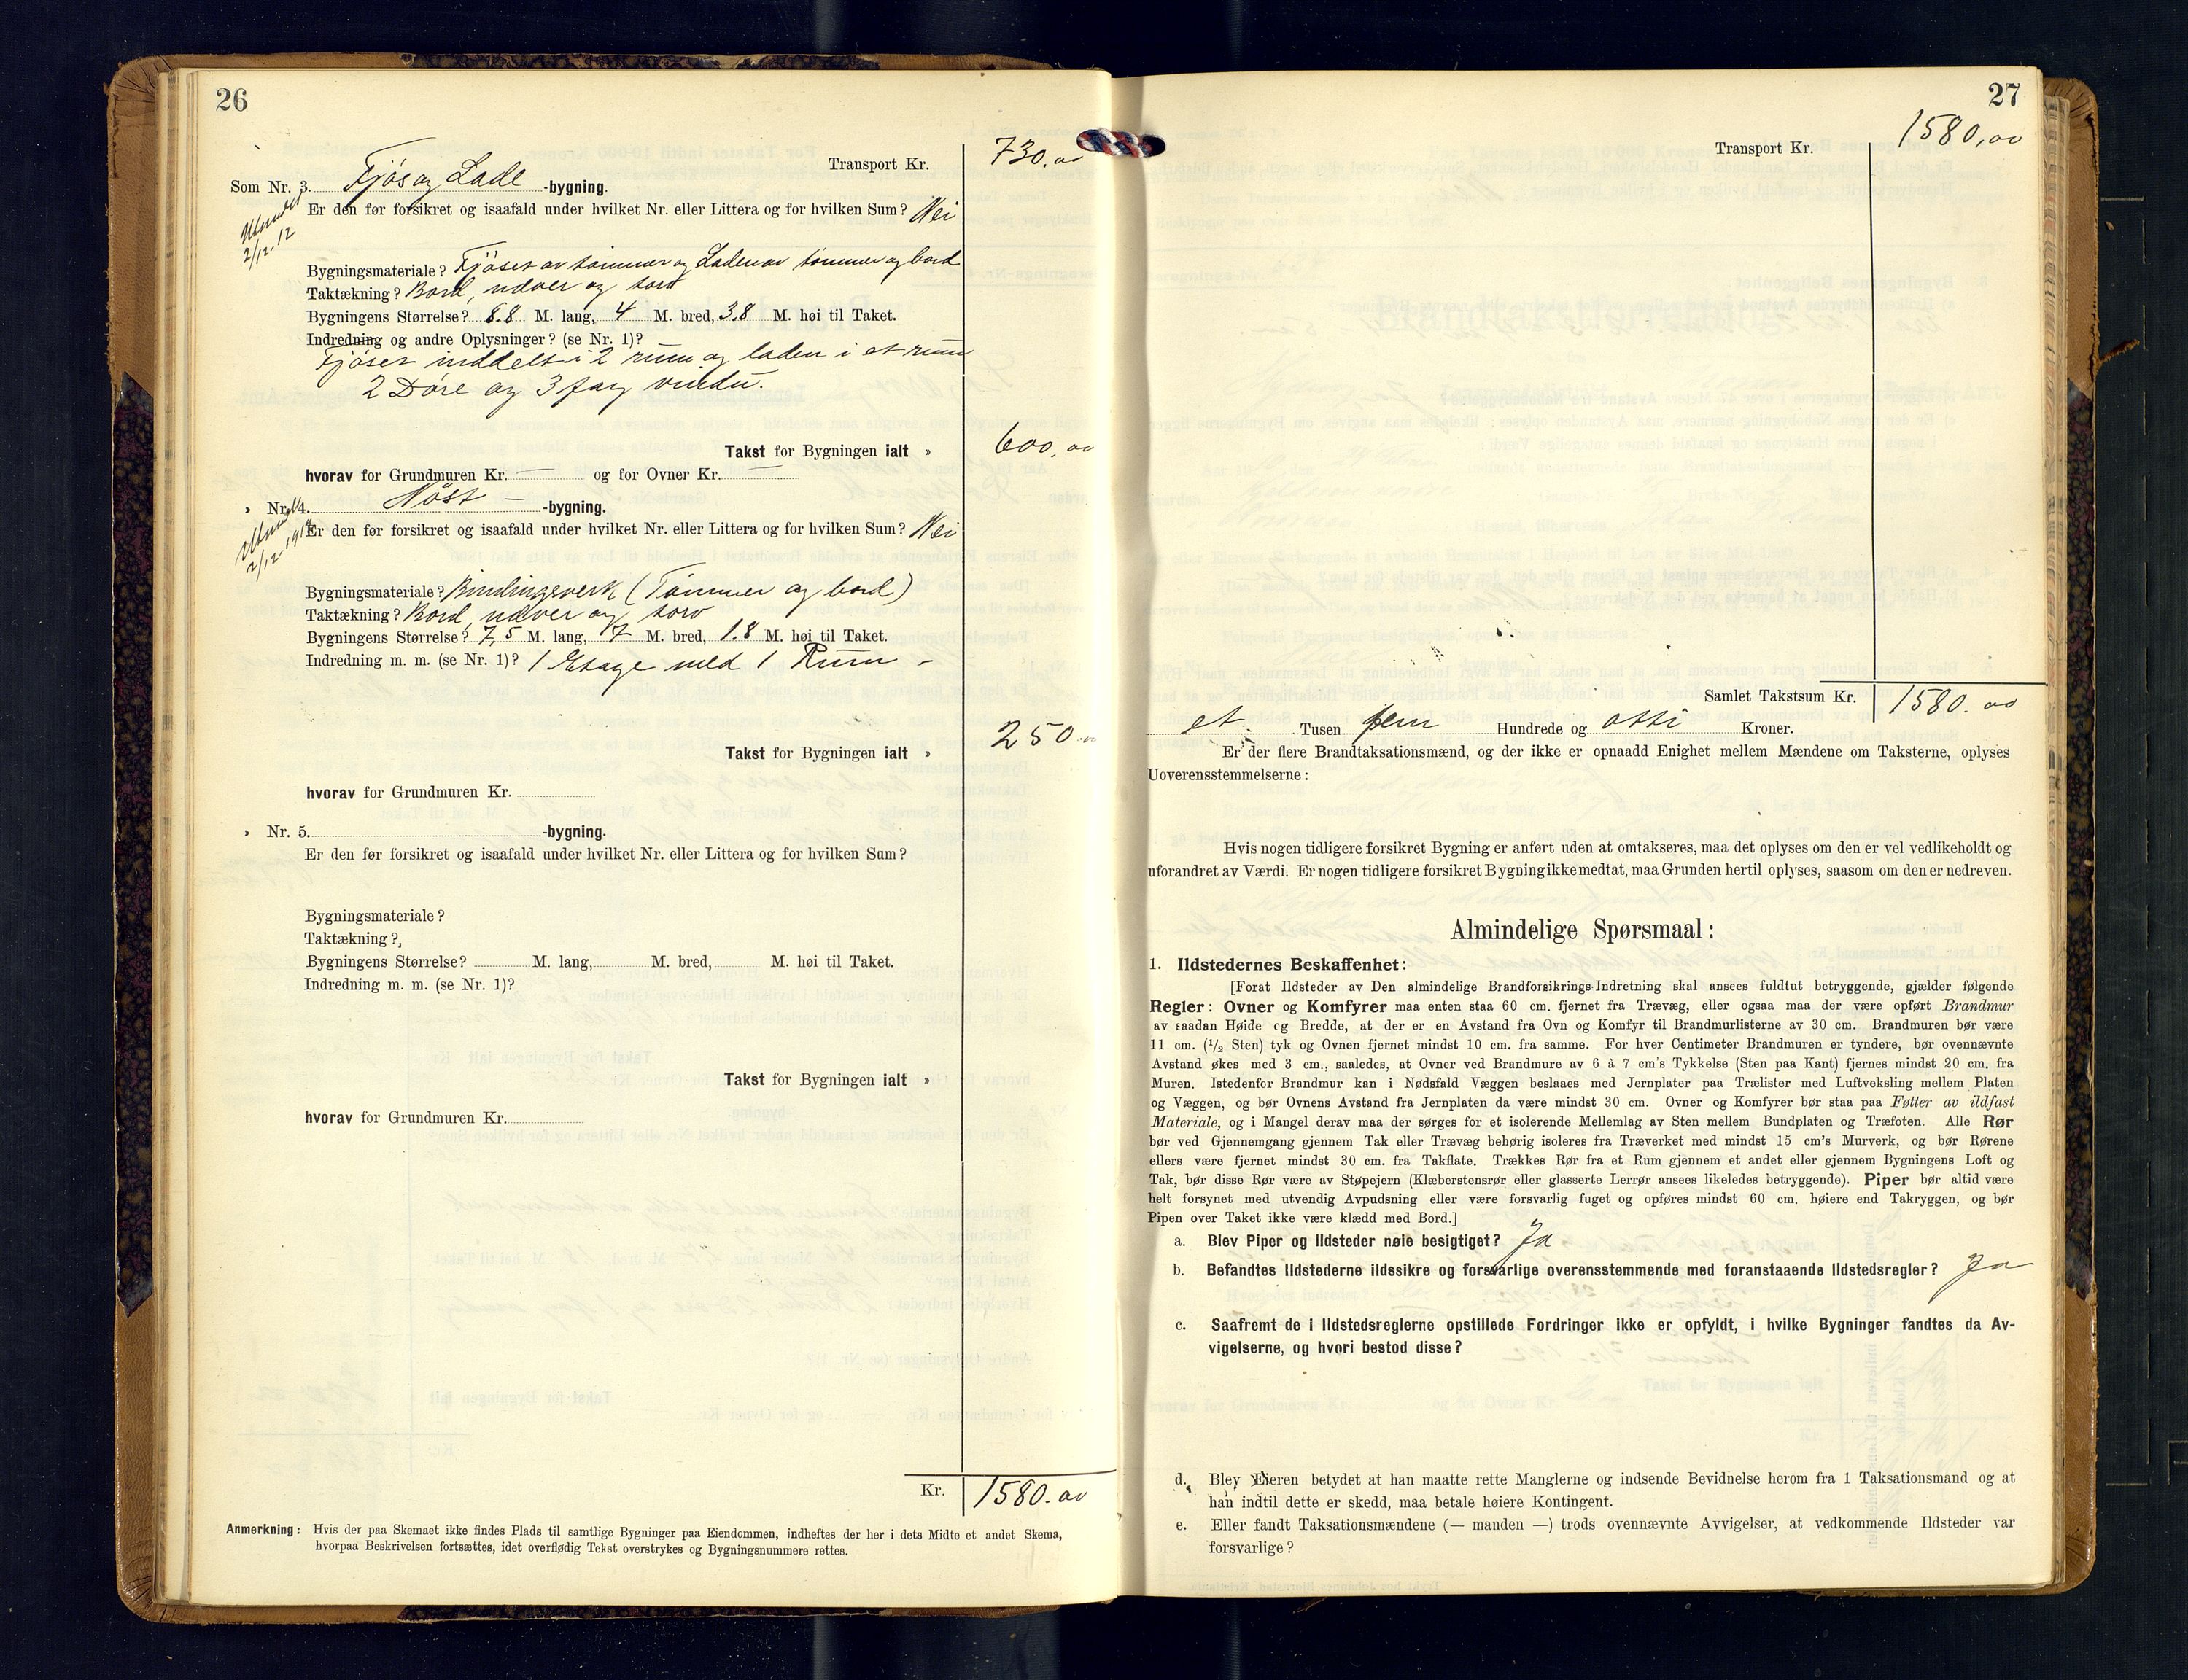 26
Transport Kr. 730.00
Som Nr. 3. Fjøs og Lade -bygning.
Er den før forsikret og isaafald under hvilket Nr. eller Littera og for hvilken Sum? Nei
2/12.12
Bygningsmateriale? Fjöset av tömmer og Laden av tömmer og bord
Taktækning? Bord, næver og torv
Bygningens Størrelse? 8.8 M. lang, 4 M. bred, 3.8 M. høi til Taket.
Indredning og andre Oplysninger? (se Nr. 1)?
Fjöset inddelt i 2 rum og laden i et rum
2 Döre og 3 fag vindu.
Takst for Bygningen ialt » 600.00
hvorav for Grundmuren Kr. — og for Ovner Kr. —
» Nr. 4. Nöst — -bygning.
Er den før forsikret og isaafald under hvilket Nr. eller Littera og for hvilken Sum? Nei
2/12 1912
Bygningsmateriale? Bindingsverk (Tömmer og bord)
Taktækning? Bord, næver og torv
Bygningens Størrelse? 7,5 M. lang, 7 M. bred, 1.8 M. høi til Taket.
Indredning m. m. (se Nr. 1)? 1 Etage med 1 Rum –
Takst for Bygningen ialt » 250
hvorav for Grundmuren Kr.
» Nr. 5. -bygning.
Er den før forsikret og isaafald under hvilket Nr. eller Littera og for hvilken Sum?
Bygningsmateriale?
Taktækning?
Bygningens Størrelse? M. lang, M. bred, M. høi til Taket.
Indredning m. m. (se Nr. 1)?
Takst for Bygningen ialt »
hvorav for Grundmuren Kr.
Kr. 1580.00
Anmerkning: Hvis der paa Skemaet ikke findes Plads til samtlige Bygninger paa Eiendommen, indheftes der her i dets Midte et andet Skema,
hvorpaa Beskrivelsen fortsættes, idet overflødig Tekst overstrykes og Bygningsnummere rettes.
27
Transport Kr. 1580,00
Samlet Takstsum Kr. 1580.00
et Tusen fem Hundrede og otti Kroner.
Er der flere Brandtaksationsmænd, og der ikke er opnaadd Enighet mellem Mændene om Taksterne, oplyses
Uoverensstemmelserne:
Hvis nogen tidligere forsikret Bygning er anført uden at omtakseres, maa det oplyses om den er vel vedlikeholdt og
uforandret av Værdi. Er nogen tidligere forsikret Bygning ikke medtat, maa Grunden hertil oplyses, saasom om den er nedreven.
Almindelige Spørsmaal:
1. Ildstedernes Beskaffenhet:
[Forat Ildsteder av Den almindelige Brandforsikrings-Indretning skal ansees fuldtut betryggende, gjælder følgende
Regler: Ovner og Komfyrer maa enten staa 60 cm. fjernet fra Trævæg, eller ogsaa maa der være opført Brandmur
av saadan Høide og Bredde, at der er en Avstand fra Ovn og Komfyr til Brandmurlisterne av 30 cm. Brandmuren bør være
11 cm. (1/2 Sten) tyk og Ovnen fjernet mindst 10 cm. fra samme. For hver Centimeter Brandmuren er tyndere, bør ovennævnte
Avstand økes med 3 cm., saaledes, at Ovner ved Brandmure av 6 à 7 cm's Tykkelse (Sten paa Kant) fjernes mindst 20 cm. fra
Muren. Istedenfor Brandmur kan i Nødsfald Væggen beslaaes med Jernplater paa Trælister med Luftveksling mellem Platen
og Væggen, og bør Ovnens Avstand fra Jernplaten da være mindst 30 cm. Ovner og Komfyrer bør staa paa Føtter av ildfast
Materiale, og i Mangel derav maa der sørges for et isolerende Mellemlag av Sten mellem Bundplaten og Træfoten. Alle Rør
bør ved Gjennemgang gjennem Tak eller Trævæg behørig isoleres fra Træverket med mindst 15 cm's Murverk, og bør Rørene
ellers være fjernet mindst 30 cm. fra Takflate. Trækkes Rør fra et Rum gjennem et andet eller gjennem Bygningens Loft og
Tak, bør disse Rør være av Støpejern (Klæberstensrør eller glasserte Lerrør ansees likeledes betryggende). Piper bør altid være
helt forsynet med utvendig Avpudsning eller være forsvarlig fuget og opføres mindst 60 cm. høiere end Takryggen, og bør
Pipen over Taket ikke være klædd med Bord.]
a. Blev Piper og Ildsteder nøie besigtiget? Ja
b. Befandtes Ildstederne ildssikre og forsvarlige overensstemmende med foranstaaende Ildstedsregler? Ja
c. Saafremt de i Ildstedsreglerne opstillede Fordringer ikke er opfyldt, i hvilke Bygninger fandtes da Av-
vigelserne, og hvori bestod disse?
d. Blev Eieren betydet at han maatte rette Manglerne og indsende Bevidnelse herom fra 1 Taksationsmand og at
han indtil dette er skedd, maa betale høiere Kontingent.
e. Eller fandt Taksationsmændene (— manden —) trods ovennævnte Avvigelser, at vedkommende Ildsteder var
forsvarlige?